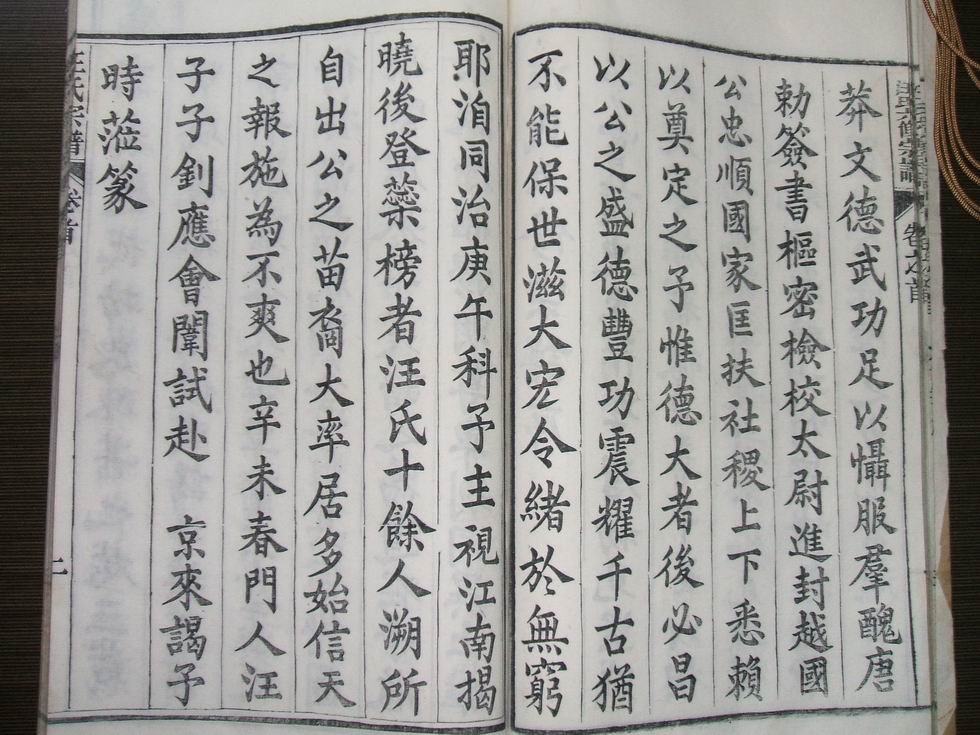 莽文德武功足以懾服羣醜唐
勅簽書樞密檢校太尉進封越國
公忠順國家匡扶社稷上下悉賴
以奠定之予惟德大者後必昌
以公之盛德豐功震耀千古猶
不能保世滋大宏令緒於無窮
耶洎同治庚午科予主視江南揭
曉後登蘂榜者汪氏十餘人溯所
自出公之苗裔大率居多始信天
之報施為不爽也辛未春門人汪
子子釗應會闈試赴 京來謁予
時蒞篆
汪氏宗譜 卷首
二